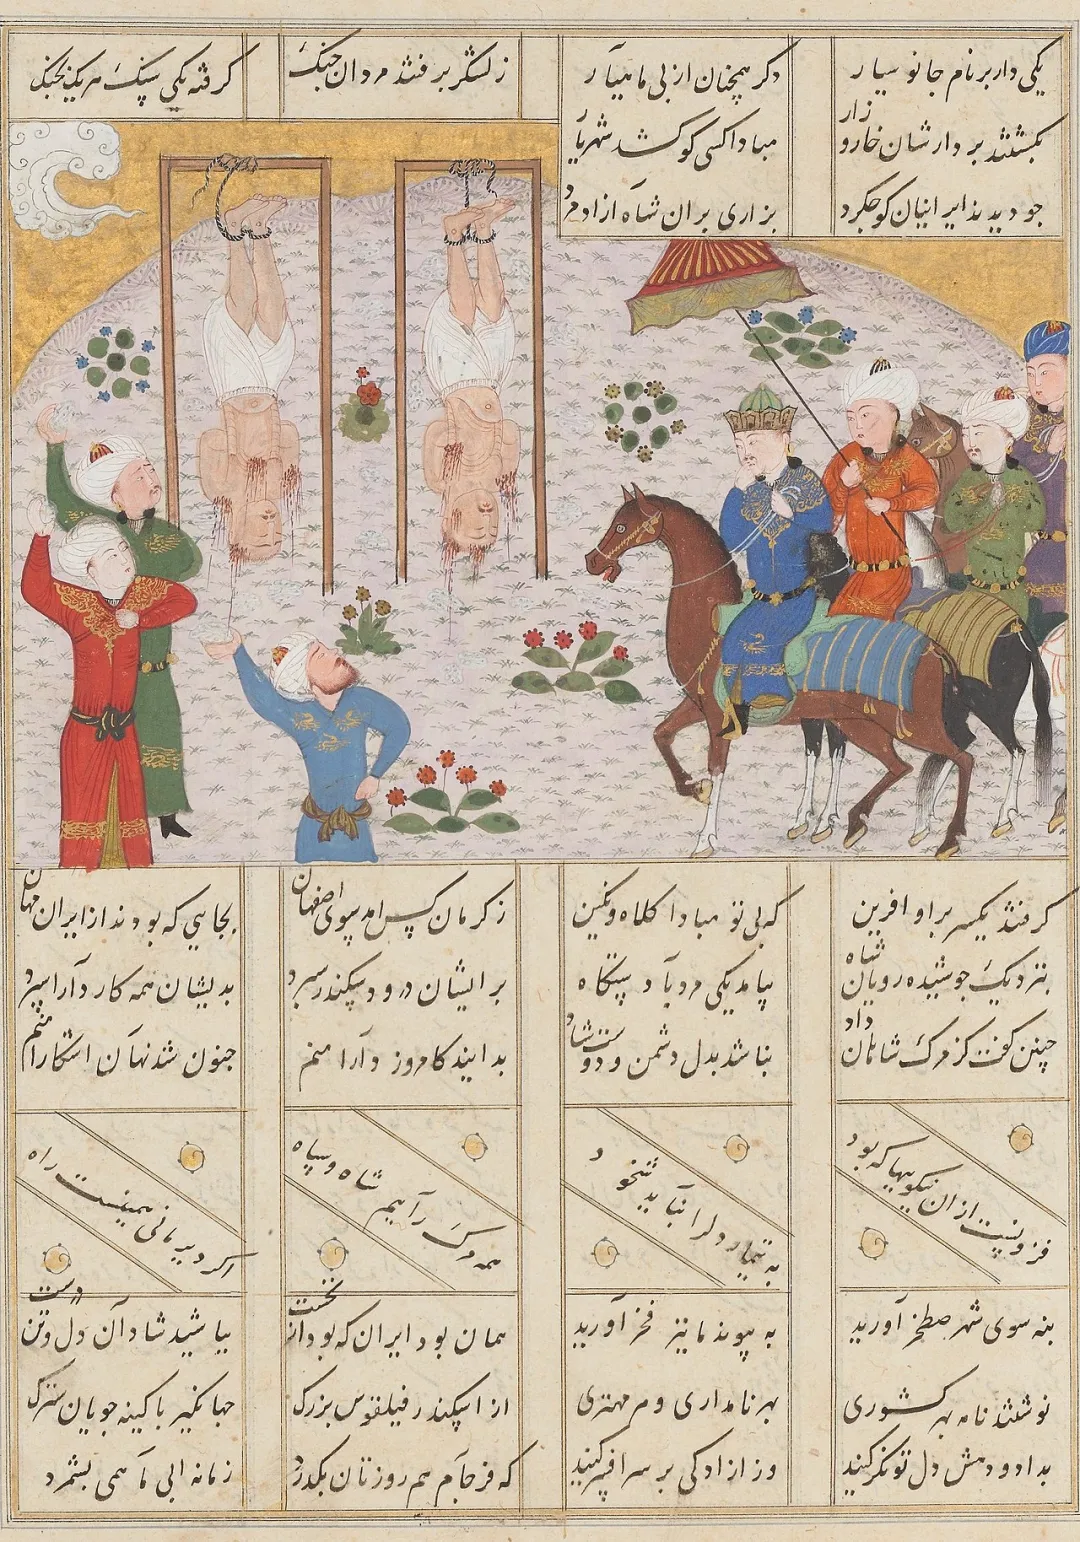 یکی دار بر نام جانوسیار دگر همچنان از پی ماهیار ز لشگر برفتند مردان جنگ گرفته یکی سنگ هر یک بچنگ
بکشتند بر دارشان خار و زار مبادا کسی کو کشد شهریار
چو دیدند ایرانیان کو چکرد بزاری بران شاه آزادمرد
گرفتند یکسر براو آفرین که بی تو مبادا کلاه و نگین ز کرمان کس آمد سوی اصفهان بجایی که بودند از ایران مهان
بنزدیک پوشیده رویان شاه بیامد یکی مرد با دستگاه بر ایشان درود سکندر ببرد بدیشان همه کار دارا سپرد
چنین گفت کز مرگ شاهان داد نباشد بدل دشمن و دوست شاد بدانید کامروز دارا منم چنون شد نهان آشکارا منم
فزونست از آن نیکویها که بود به تیمار دل را نباید شخود همه مرگ راایم شاه و سپاه اگر دیر مانی همینست راه
بنه سوی شهر صطخر آورید به پیوند ما نیز فخر آورید همان بود ایران که بود از نخست بباشید شادان دل و تن درست
نوشتند نامه بهر کشوری بهر نامداری و هر مهتری از اسکندر فیلقوس بزرگ جهانگیر با کینه جویان سترگ
بداد و دهش دل تونگر کنید وز ازادکی بر سر افسر کنید که فرجام هم روزتان بگذرد زمانه پی ما همی بشمرد